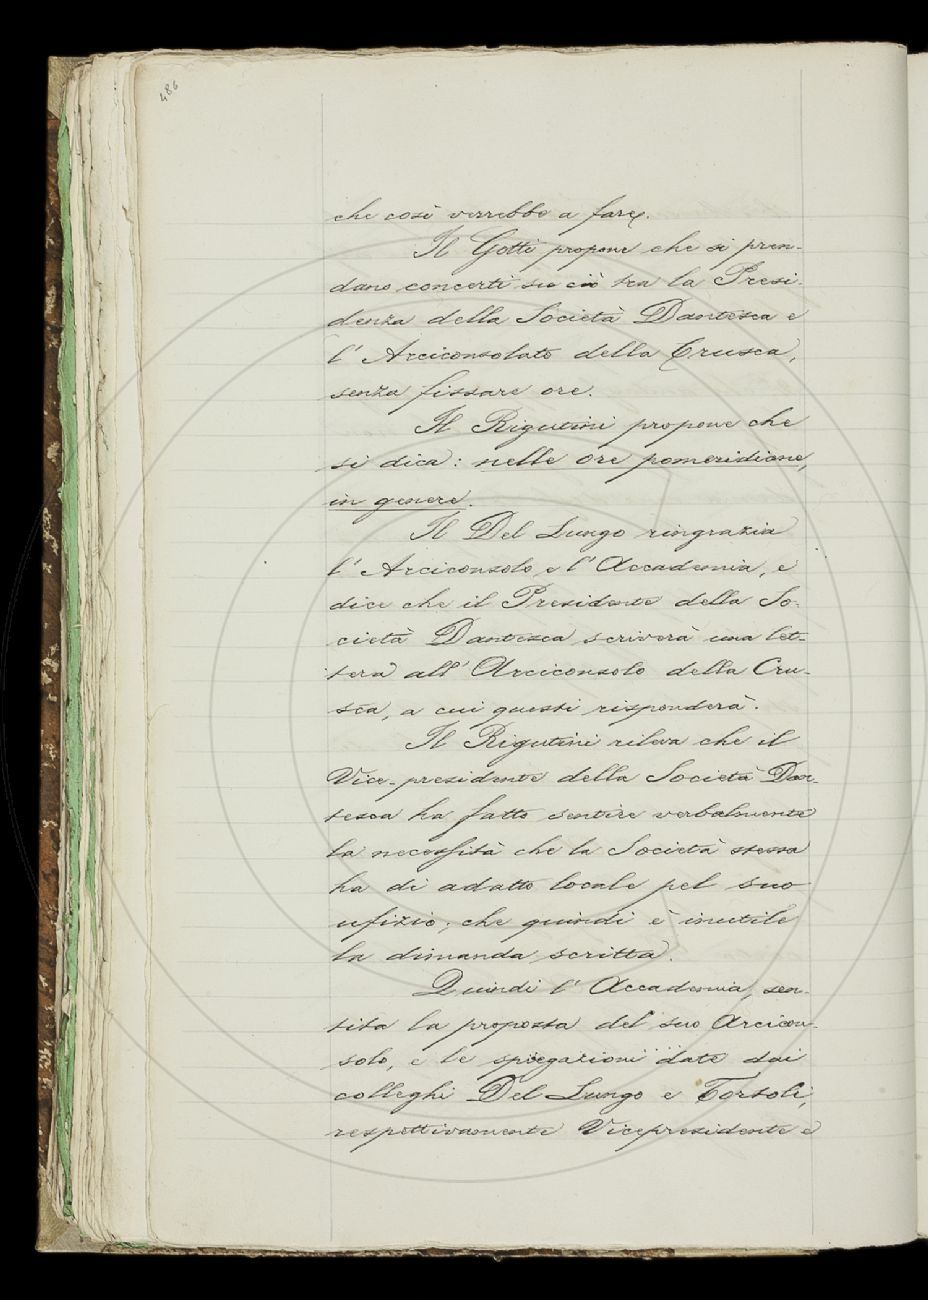 486
che così verrebbe a fare.
Il Gotti propone che si pren-
dano concerti su ciò tra la Presi-
denza della Società Dantesca e
l'Arciconsolato della Crusca,
senza fissare ore.
Il Rigutini propone che
si dica: nelle ore pomeridiane,
in genere.
Il Del Lungo ringrazia
l'Arciconsolo e l'Accademia, e
dice che il Presidente della So-
cietà Dantesca scriverà una let-
tera all'Arciconsolo della Cru-
sca, a cui questi risponderà.
Il Rigutini rileva che il
Vice-presidente della Società Dan-
tesca ha fatto sentire verbalmente
la necessità che la Società stessa
ha di adatto locale pel suo
ufizio; che quindi è inutile
la dimanda scritta.
Quindi l'Accademia, sen-
tita la proposta del suo Arcicon-
solo, e le spiegazioni date dai
colleghi Del Lungo e Tortoli,
respettivamente Vicepresidente e